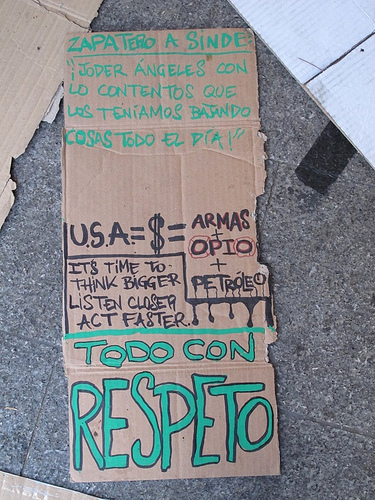 ZAPATERO A SINDE:
"¡JODER ÁNGELES CON
LO CONTENTOS QUE
LOS TENÍAMOS BAJANDO
COSAS TODO EL DÍA!"
U.S.A. = $ =
ARMAS
+
OPIO
+
PETRÓLEO
ITS TIME TO
THINK BIGGER
LISTEN CLOSER
ACT FASTER..
TODO CON
RESPETO